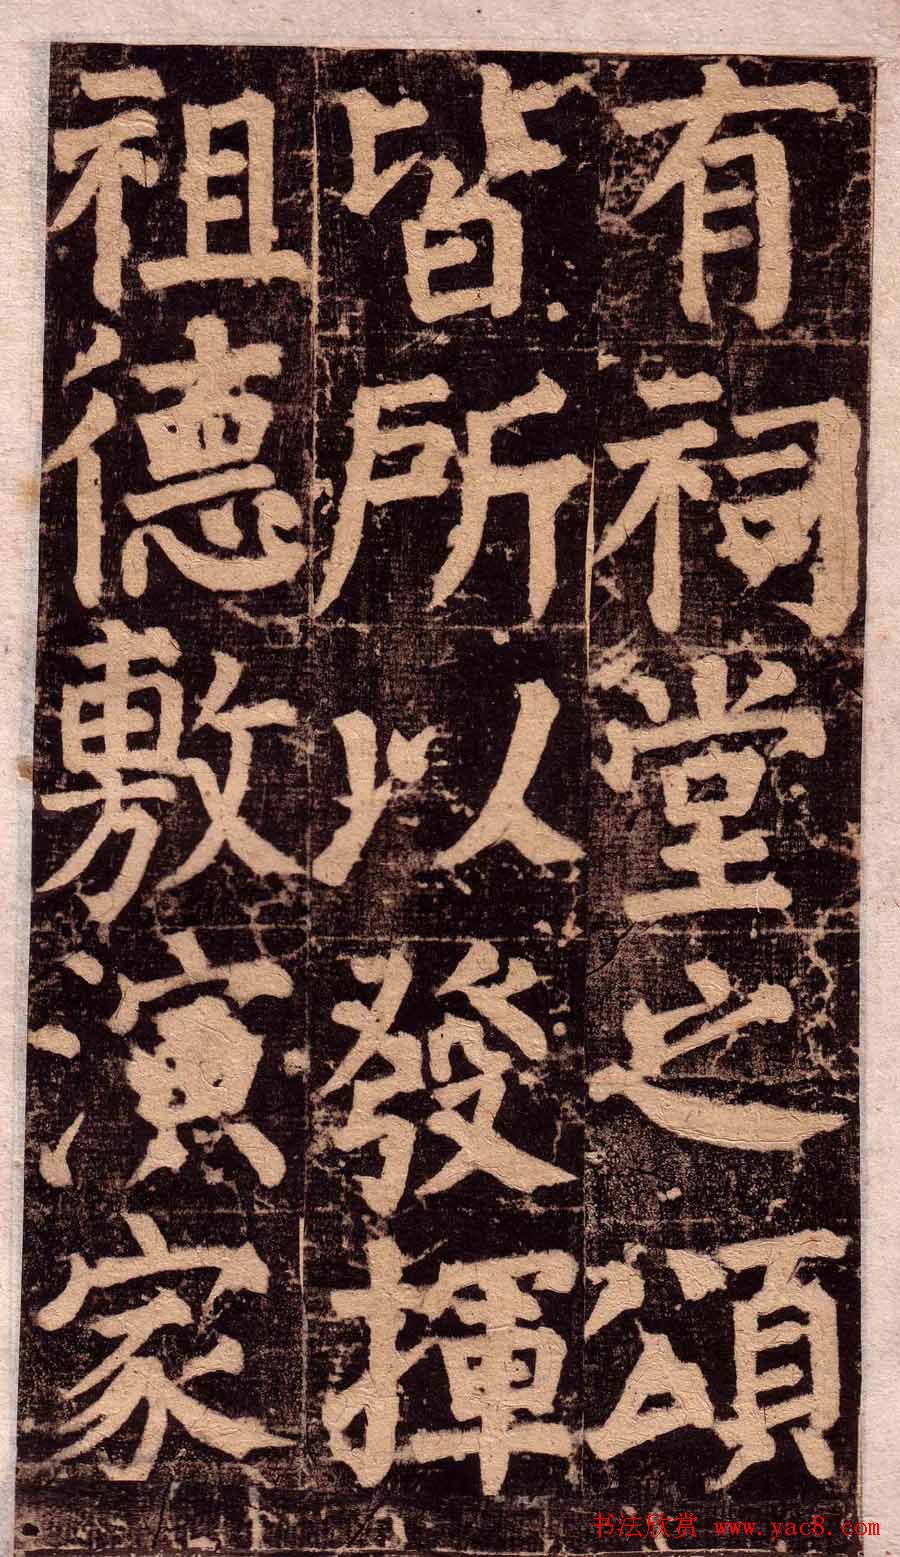 有祠堂之頌
皆所以發揮
祖德敷演家
书法欣赏 www.yac8.com